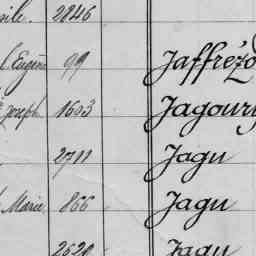 ile. 2846
Eugène 99 Jaffrézo
Joseph 1603 Jagour
2711 Jagu
Marie 866 Jagu
2620 Jagu